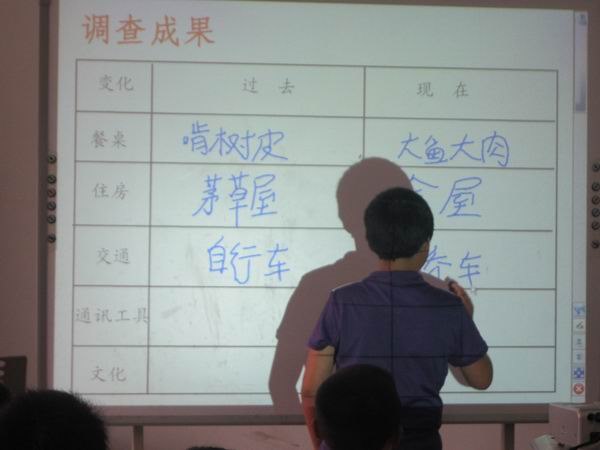 调查成果
变化 过去 现在
餐桌 啃树皮 大鱼大肉
住房 茅草屋 屋
交通 自行车 车
通讯工具
文化